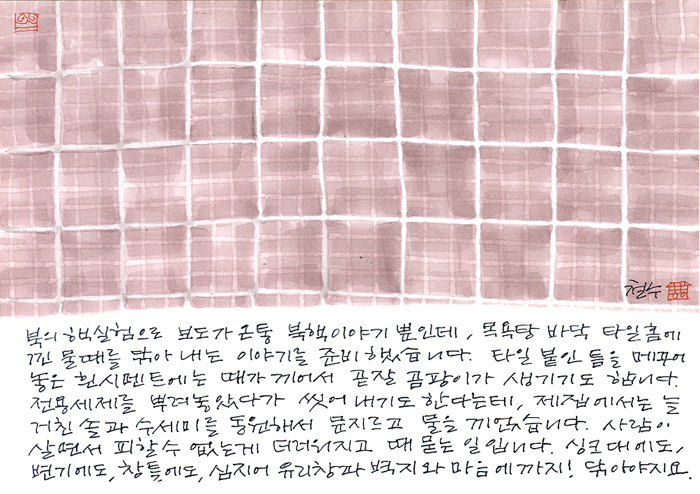 철수
북의 핵실험으로 보도가 온통 북핵이야기 뿐인데, 목욕탕 바닥 타일홈에
낀 물때를 닦아 내는 이야기를 준비했습니다. 타일 붙인 틈을 메꾸어
놓은 흰시멘트에는 때가 끼어서 끝잘 곰팡이가 생기기도 합니다.
전용세제를 뿌려놓았다가 씻어 내기도 한다는데, 제집에서는 늘
거친 솔과 수세미를 동원해서 문지르고 물을 끼얹습니다. 사람이
살면서 피할 수 없는게 더러워지고 때 묻는 일입니다. 싱크대에도,
변기에도, 창틀에도, 심지어 유리창과 벽지와 마음에까지! 닦아야지요.